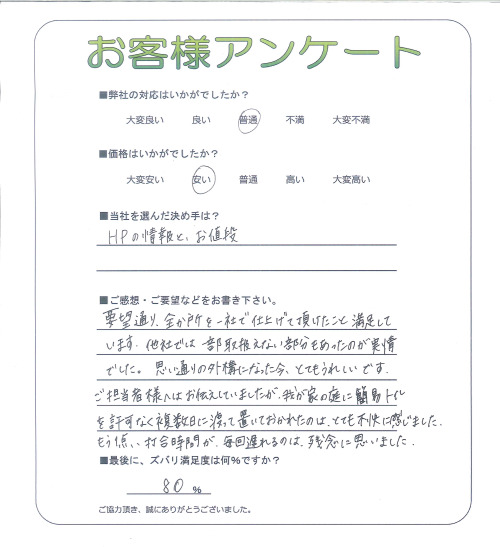 お客様アンケート
■弊社の対応はいかがでしたか？
大変良い 良い 普通 不満 大変不満
■価格はいかがでしたか？
大変安い 安い 普通 高い 大変高い
■当社を選んだ決め手は？
HPの情報と、お値段
■ご感想・ご要望などをお書き下さい。
要望通り、全か所を一社で仕上げて頂けたこと満足して
います。他社では一部取扱えない部分もあったのが実情
でした。思い通りの外構になった今、とてもうれしいです。
ご担当者様へはお伝えしていましたが、我が家の庭に簡易トイレ
を許可なく複数日に渡って置いておかれたのは、とても不快に感じました。
もう点い、打合時間が、毎回遅れるのは、残念に思いました。
■最後に、ズバリ満足度は何%ですか？
80 %
ご協力頂き、誠にありがとうございました。